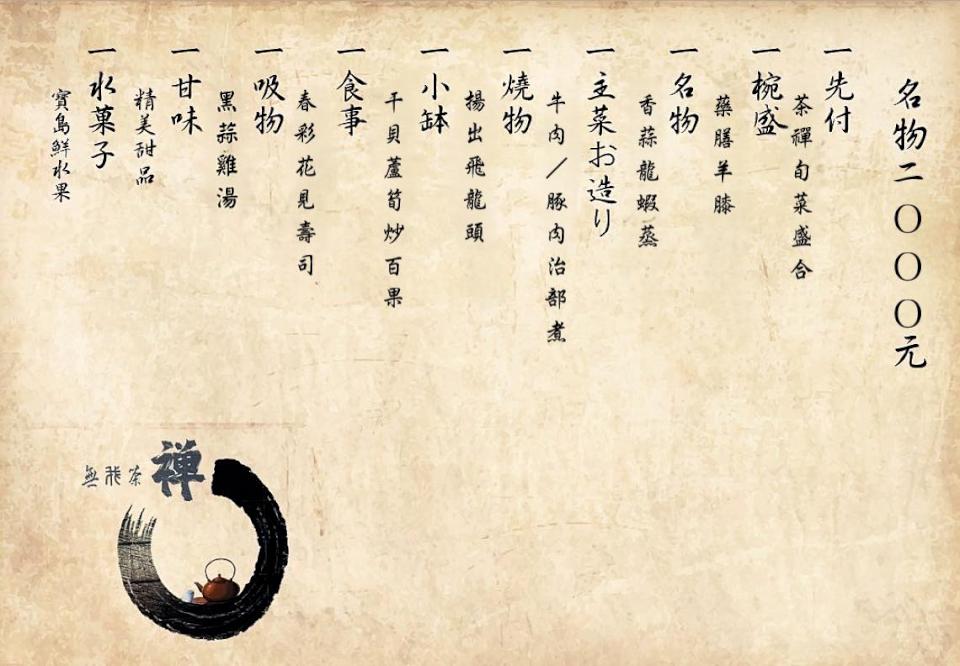 名物二〇〇〇元
一先付
茶禪旬菜盛合
一椀盛
藥膳羊膝
一名物
香蒜龍蝦蒸
一主菜お造り
牛肉／豚肉治部煮
一燒物
揚出飛龍頭
一小缽
干貝蘆筍炒百果
一食事
春彩花見壽司
一吸物
黑蒜雞湯
一甘味
精美甜品
一水菓子
寶島鮮水果
禅
無我茶